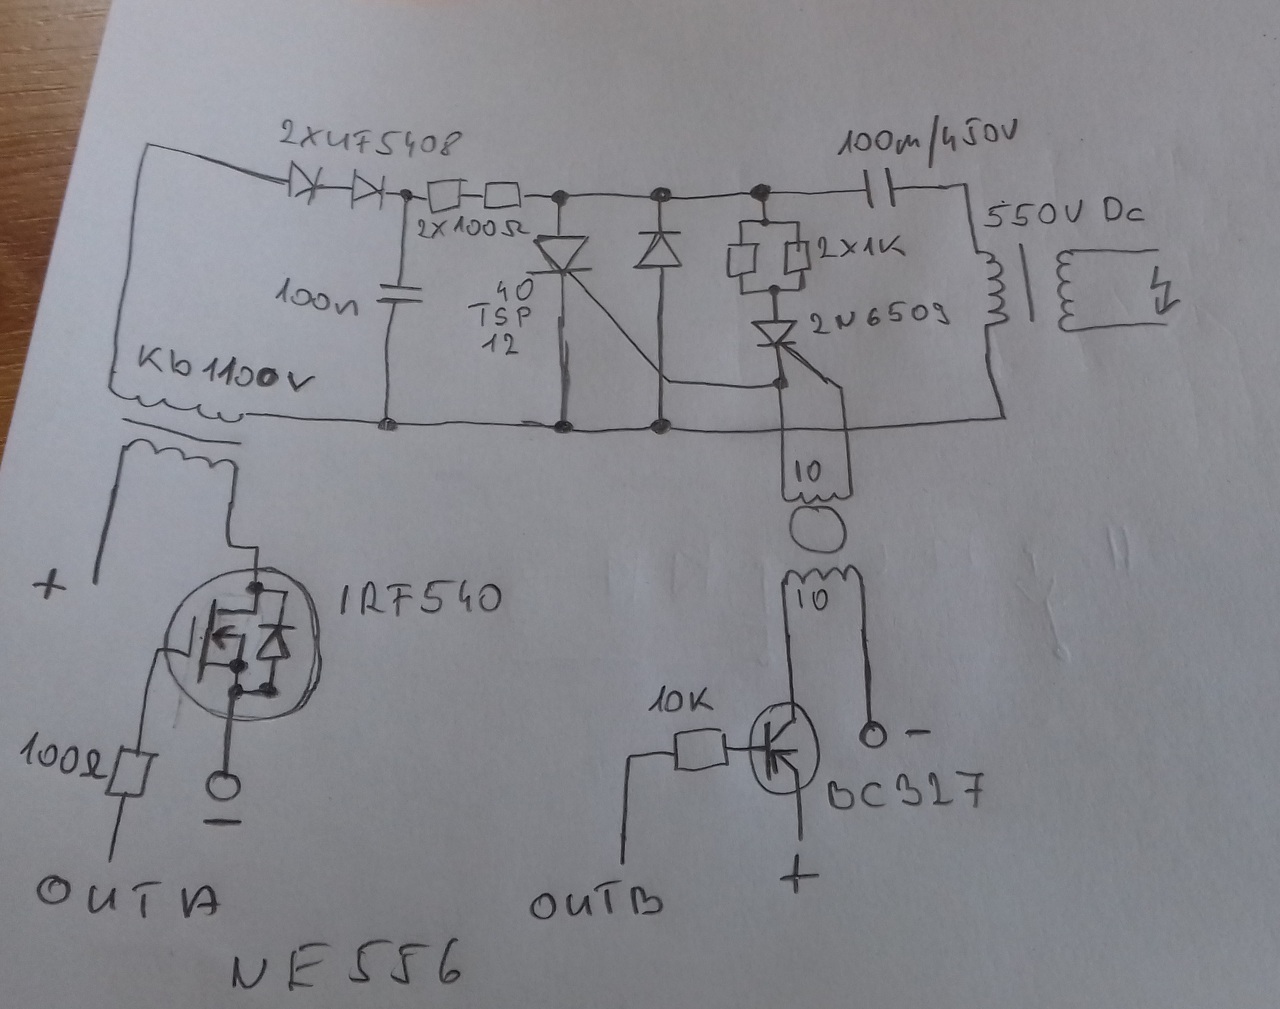 2XUF5408
100m/450V
550V Dc
2X100Ω
2X1K
100n
40
TSP
12
2N6509
Kb1100V
10
+
IRF540
10
10K
-
100Ω
BC327
-
+
OUTA
OUTB
NE556